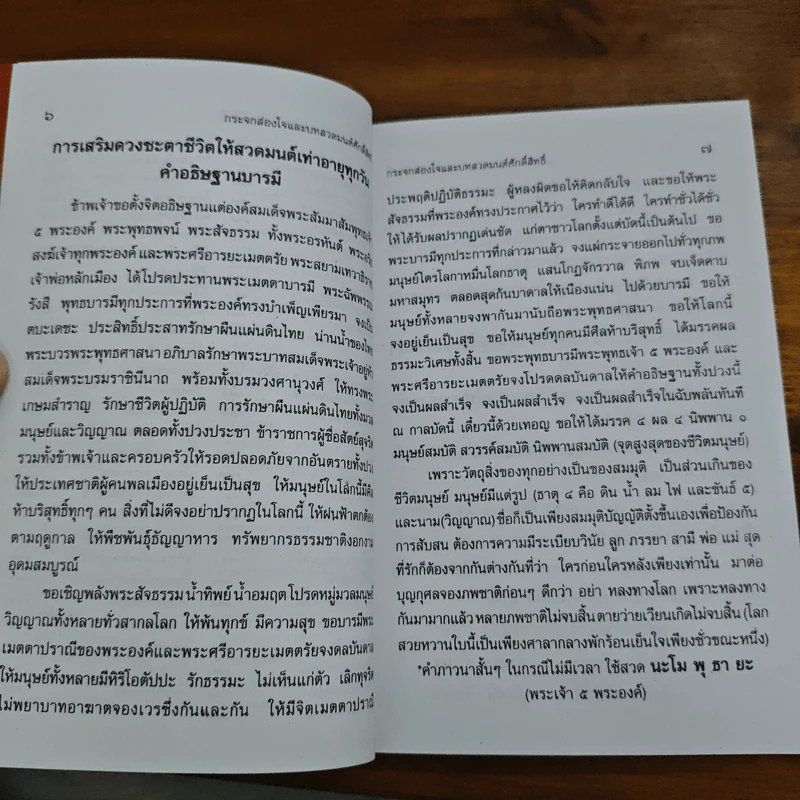 ๖
กระจกส่องใจและบทสวดมนต์ศักดิ์สิทธิ์
การเสริมดวงชะตาชีวิตให้สวดมนต์เท่าอายุทุกวัน
คำอธิษฐานบารมี
ข้าพเจ้าขอตั้งจิตอธิษฐานแต่องค์สมเด็จพระสัมมาสัมพุทธเจ้า
๕ พระองค์ พระพุทธพจน์ พระสัจธรรม ทั้งพระอรหันต์
สงฆ์เจ้าทุกพระองค์ และพระศรีอารยะเมตตรัย พระสยามเทวาธิราช
เจ้าพ่อหลักเมือง ได้โปรดประทานพระเมตตาบารมี
รังสี พุทธบารมีทุกประการที่พระองค์ทรงบำเพ็ญเพียรมา จงเป็น
ตบะเดชะ ประสิทธิ์ประสาทรักษาผืนแผ่นดินไทย น่านน้ำของไทย
พระบวรพระพุทธศาสนา อภิบาลรักษาพระบาทสมเด็จพระเจ้าอยู่หัว
สมเด็จพระบรมราชินีนาถ พร้อมทั้งบรมวงศานุวงศ์ ให้ทรงพระ
เกษมสำราญ รักษาชีวิตผู้ปฏิบัติ การรักษาผืนแผ่นดินไทยทั้งมวล
มนุษย์และวิญญาณ ตลอดทั้งปวงประชา ข้าราชการผู้ซื่อสัตย์สุจริต
รวมทั้งข้าพเจ้าและครอบครัวให้รอดปลอดภัยจากอันตรายทั้งปวง
ให้ประเทศชาติผู้คนพลเมืองอยู่เย็นเป็นสุข ให้มนุษย์ในโลกนี้มีศีล
ห้าบริสุทธิ์ทุกๆ คน สิ่งที่ไม่ดีจงอย่าปรากฏในโลกนี้ ให้ฝนฟ้าตกต้อง
ตามฤดูกาล ให้พืชพันธุ์ธัญญาหาร ทรัพยากรธรรมชาติงอกงาม
อุดมสมบูรณ์
ขอเชิญพลังพระสัจธรรม น้ำทิพย์ น้ำอมฤต โปรดหมู่มวลมนุษย์
วิญญาณทั้งหลายทั่วสากลโลก ให้พ้นทุกข์ มีความสุข ขอบารมีพระ
เมตตาปราณีของพระองค์และพระศรีอารยะเมตตรัยจงดลบันดาล
ให้มนุษย์ทั้งหลายมีหิริโอตัปปะ รักธรรมะ ไม่เห็นแก่ตัว เลิกทุจริต
ไม่พยาบาทอาฆาตจองเวรซึ่งกันและกัน ให้มีจิตเมตตาปราณี
กระจกส่องใจและบทสวดมนต์ศักดิ์สิทธิ์
๗
ประพฤติปฏิบัติธรรมะ ผู้หลงผิดขอให้คิดกลับใจ และขอให้พระ
สัจธรรมที่พระองค์ทรงประกาศไว้ว่า ใครทำดีได้ดี ใครทำชั่วได้ชั่ว
ให้ได้รับผลปรากฏเด่นชัด แก่ตาชาวโลกตั้งแต่บัดนี้เป็นต้นไป ขอ
พระบารมีทุกประการที่กล่าวมาแล้ว จงแผ่กระจายออกไปทั่วทุกภพ
มนุษย์ไตรโลกาหมื่นโลกธาตุ แสนโกฏจักรวาล พิภพ จบเจ็ดคาบ
มหาสมุทร ตลอดสุดก้นบาดาลให้เนืองแน่น ไปด้วยบารมี ขอให้
มนุษย์ทั้งหลายจงพากันมานับถือพระพุทธศาสนา ขอให้โลกนี้
จงอยู่เย็นเป็นสุข ขอให้มนุษย์ทุกคนมีศีลห้าบริสุทธิ์ ได้มรรคผล
ธรรมะวิเศษทั้งสิ้น ขอพระพุทธบารมีพระพุทธเจ้า ๕ พระองค์ และ
พระศรีอารยะเมตตรัยจงโปรดดลบันดาลให้คำอธิษฐานทั้งปวงนี้
จงเป็นผลสำเร็จ จงเป็นผลสำเร็จ จงเป็นผลสำเร็จในฉับพลันทันที
ณ กาลบัดนี้ เดี๋ยวนี้ด้วยเทอญ ขอให้ได้มรรค ๔ ผล ๔ นิพพาน ๑
มนุษย์สมบัติ สวรรค์สมบัติ นิพพานสมบัติ (จุดสูงสุดของชีวิตมนุษย์)
เพราะวัตถุสิ่งของทุกอย่างเป็นของสมมุติ เป็นส่วนเกินของ
ชีวิตมนุษย์ มนุษย์มีแต่รูป (ธาตุ ๔ คือ ดิน น้ำ ลม ไฟ และขันธ์ ๕)
และนาม(วิญญาณ) ชื่อก็เป็นเพียงสมมุติบัญญัติตั้งขึ้นเองเพื่อป้องกัน
การสับสน ต้องการความมีระเบียบวินัย ลูก ภรรยา สามี พ่อ แม่ สุด
ที่รักก็ต้องจากกันต่างกันที่ว่า ใครก่อนใครหลังเพียงเท่านั้น มาต่อ
บุญกุศลจองภพชาติก่อนๆ ดีกว่า อย่า หลงทางโลก เพราะหลงทาง
กันมามากแล้ว หลายภพชาติไม่จบสิ้น ตายว่ายเวียนเกิดไม่จบสิ้น (โลก
สวยหวานใบนี้เป็นเพียงศาลากลางพักร้อนเย็นใจเพียงชั่วขณะหนึ่ง)
*คำภาวนาสั้นๆ ในกรณีไม่มีเวลา ใช้สวด นะโม พุ ธา ยะ
(พระเจ้า ๕ พระองค์)